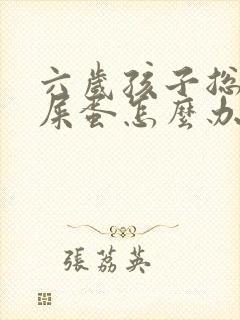 六歲孩子總
屎蛋怎麼办
張荔英